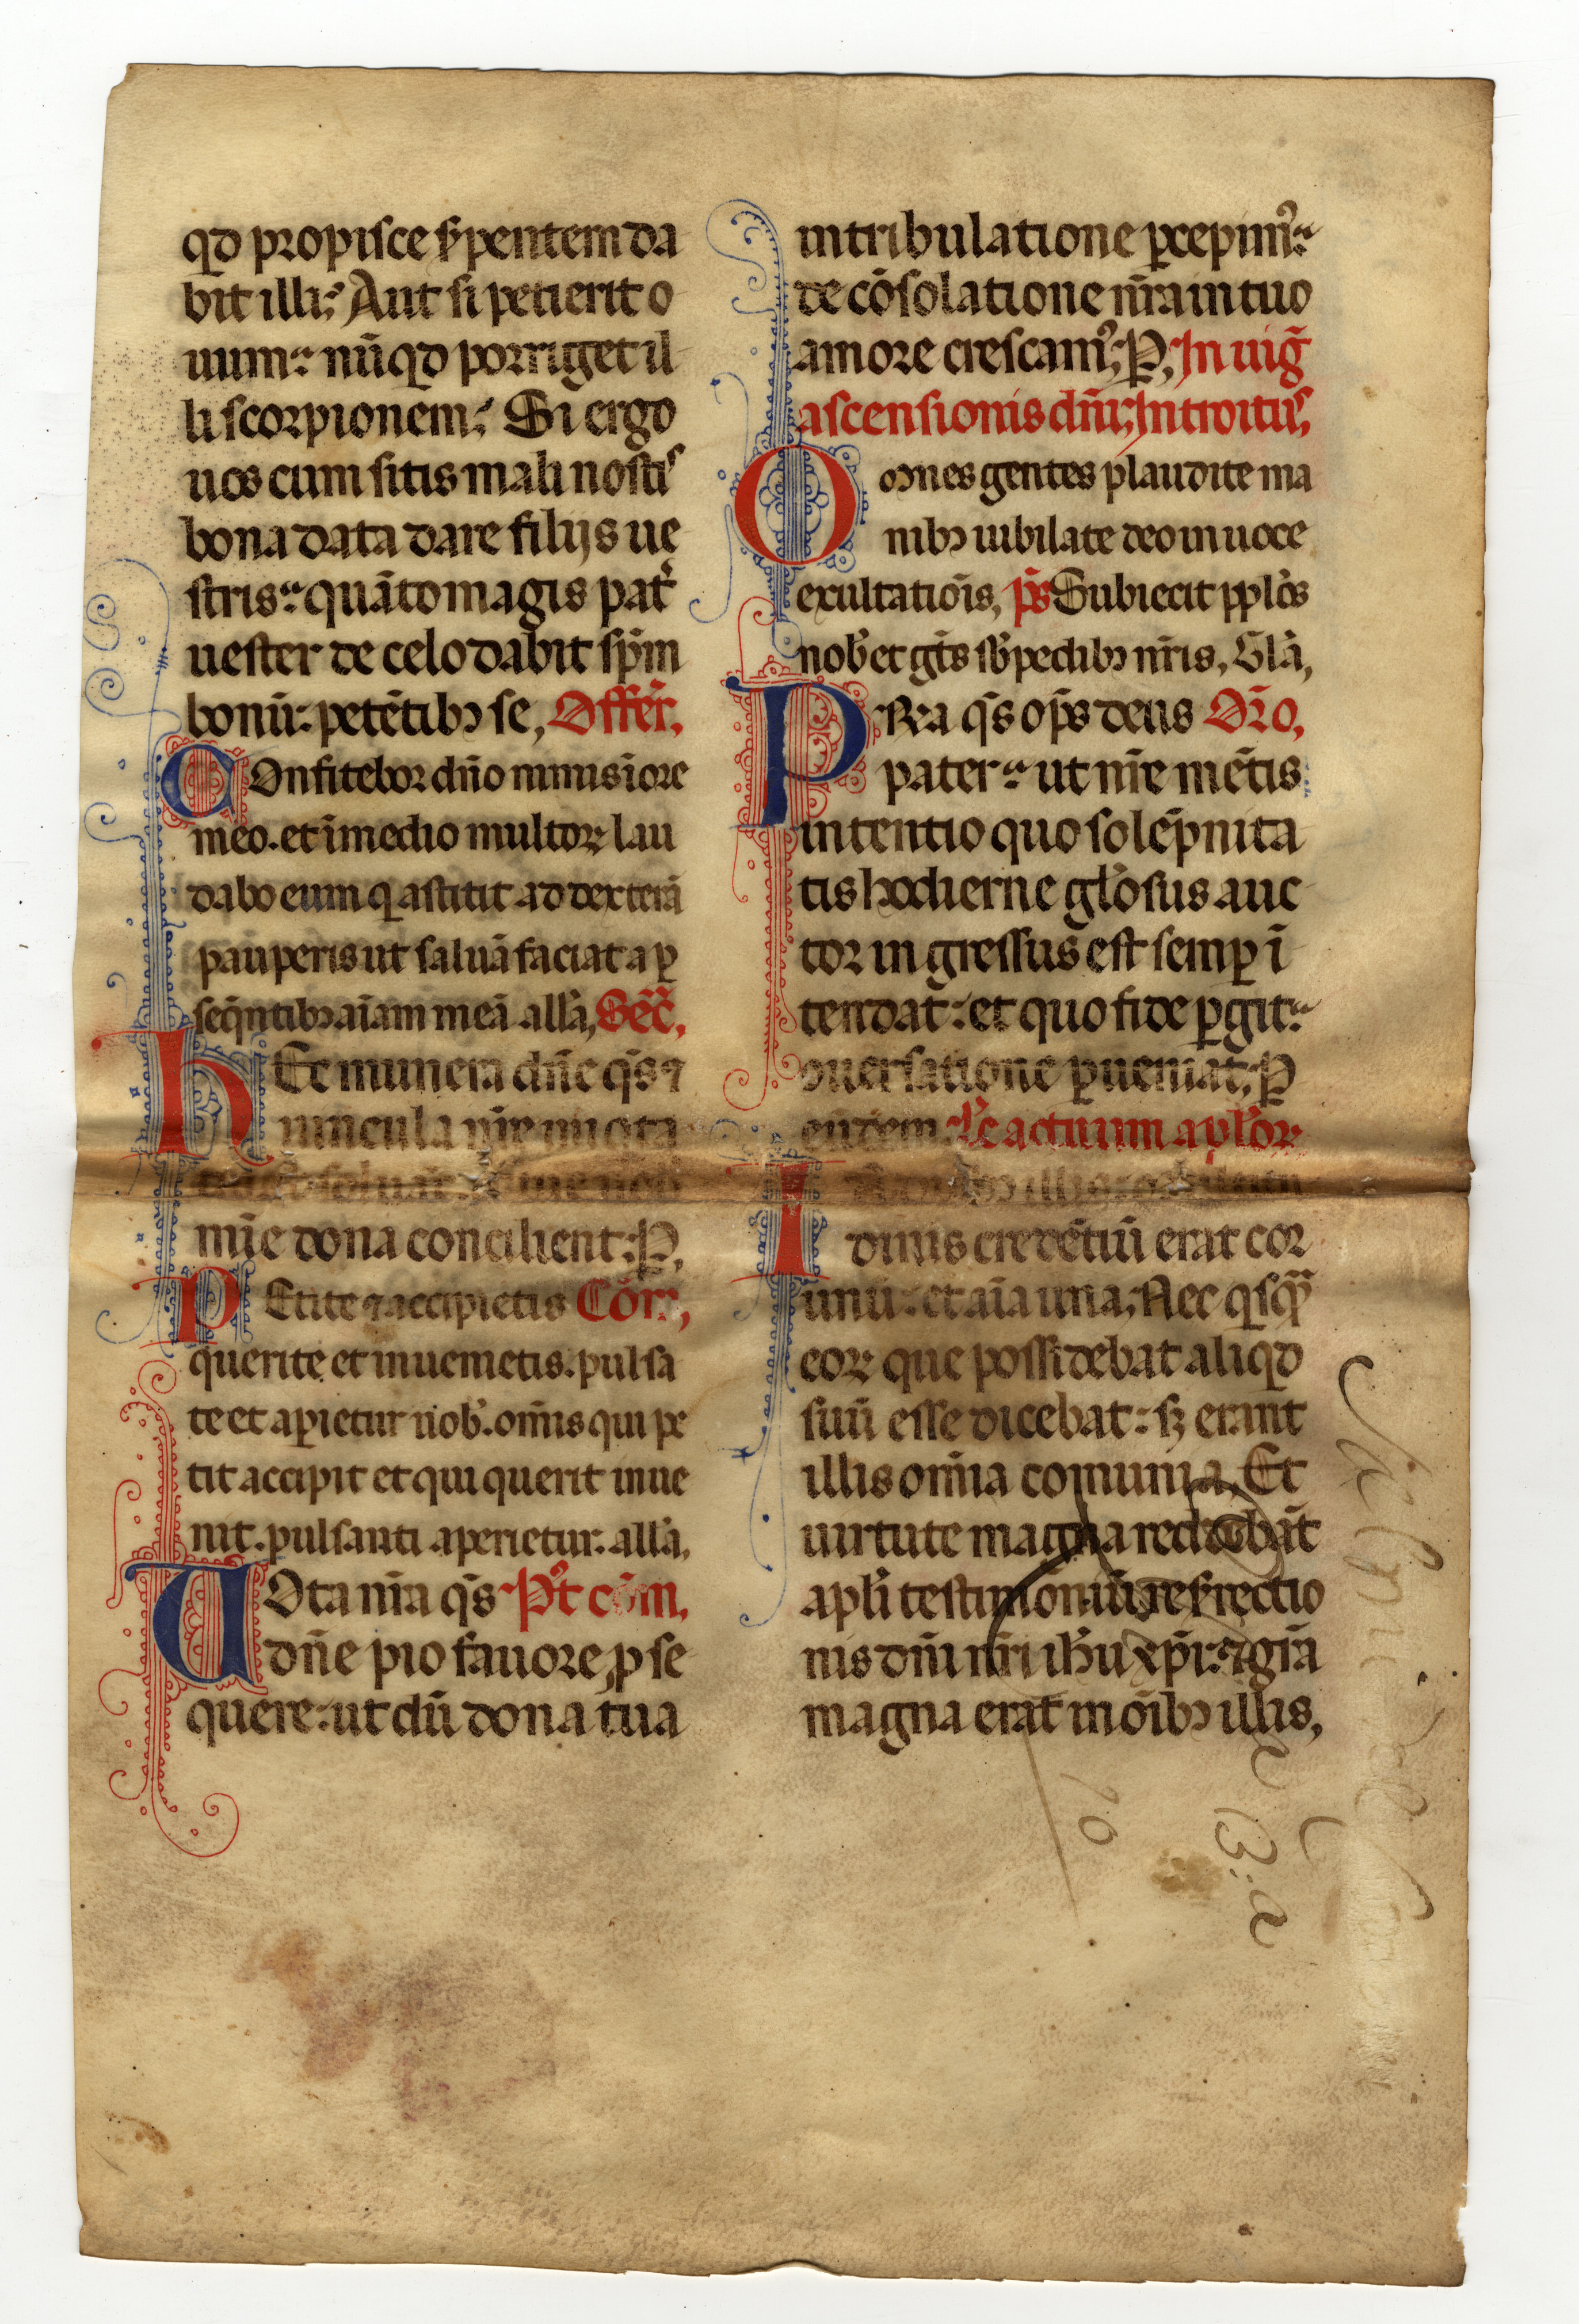 qd̄ pro pisce s̄pentem da
bit illi; Aut si petierit o
uum: nūqd̄ porriget il
li scorpionem; Si ergo
uos cum sitis mali nostiˢ
bona data dare filijs ue
stris: quāto magis pat̉
uester de celo dabit sp̄m
bonū: petētibꝫ se, Offer̄,
COnfitebor dn̄o nimis ī ore
meo. et ī medio multoꝝ lau
dabo eum q̄ astitit ad dexterā
pauperis ut saluā faciat a ꝑ
seq̄ntibꝫ aīam meā allā, Sēc,
hEc munera dn̄e q̄s ⁊
uincula nr̄e
mīe dona concilient: P,
PEtite ⁊ accipietis Cōr,
querite et inuenietis. pulsa
te et aꝑietur uob̉. om̄is qui pe
tit accipit et qui querit inue
nit. pulsanti aperietur. allā,
UOta nr̄a q̄s Pꝰt cōm,
dn̄e pio fauore ꝓse
quere: ut dū dona tua
in tribulatione ꝑcepimꝰ:
de cōsolatione nr̄a in tuo
amore crescamꝰ; P, In uiḡ
ascensionis dn̄i; Introitus,
Omnes gentes plaudite ma
nibꝫ iubilate deo in uoce
exultatiōis, p̄s Subiecit pplōs
nob̉ et gēs sb̉ pedibꝫ nr̄is, Glā,
PRa q̄s op̄s deus Oro,
pater: ut nr̄e mētis
intentio quo solēpnita
tis hodierne gl̄osus auc
tor ingressus est semꝑ ī
tendat: et quo fide ꝑgit:
ꝯuersatione ꝑueniat; P
eūdem. Lc̄ actuum aplōꝝ
I
dinis credētiū erat cor
unū: et aīa una; Nec qisqᵃ
eoꝝ que possidebat aliqd̄
suū esse dicebat: sꝫ erant
illis om̄ia comunia, Et
uirtute magna reddebāt
apl̄i testimoniū resr̄rectio
nis dn̄i nr̄i ih̄u xp̄i: ⁊ grā
magna erat in oībꝫ illis,
10
13:a